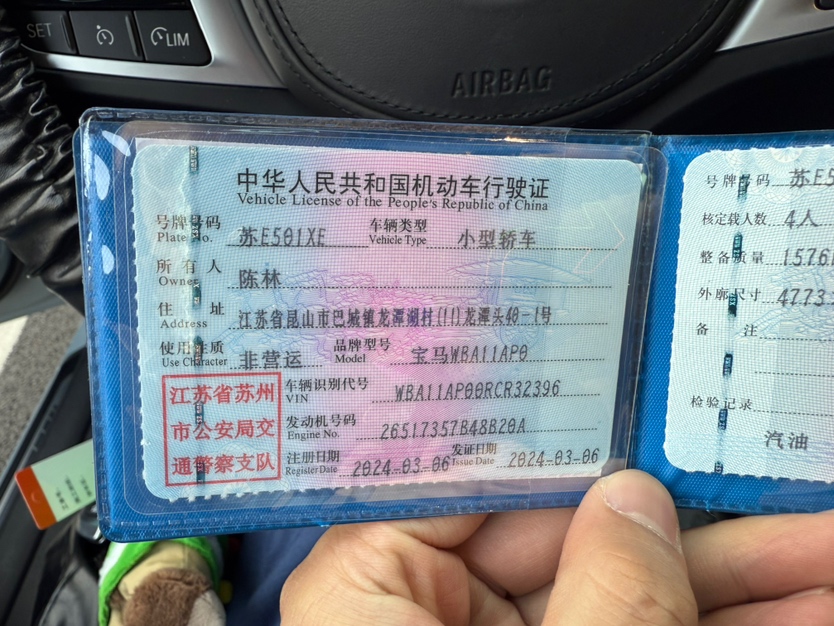 SET
LIM
AIRBAG
中华人民共和国机动车行驶证
Vehicle License of the People's Republic of China
号牌号码 苏E501XE 车辆类型 小型轿车
Plate No. Vehicle Type
所有人 陈林
Owner
住址 江苏省昆山市巴城镇龙潭湖村(11)龙潭头40-1号
Address
使用性质 非营运 品牌型号 宝马WBA11AP0
Use Character Model
江苏省苏州
市公安局交
通警察支队
车辆识别代号 WBA11AP00RCR32396
VIN
发动机号码 26517357B48B20A
Engine No.
注册日期 2024-03-06 发证日期 2024-03-06
Register Date Issue Date
号牌号码 苏E5
核定载人数 4人
整备质量 1576
外廓尺寸 4773
备注
检验记录
汽油